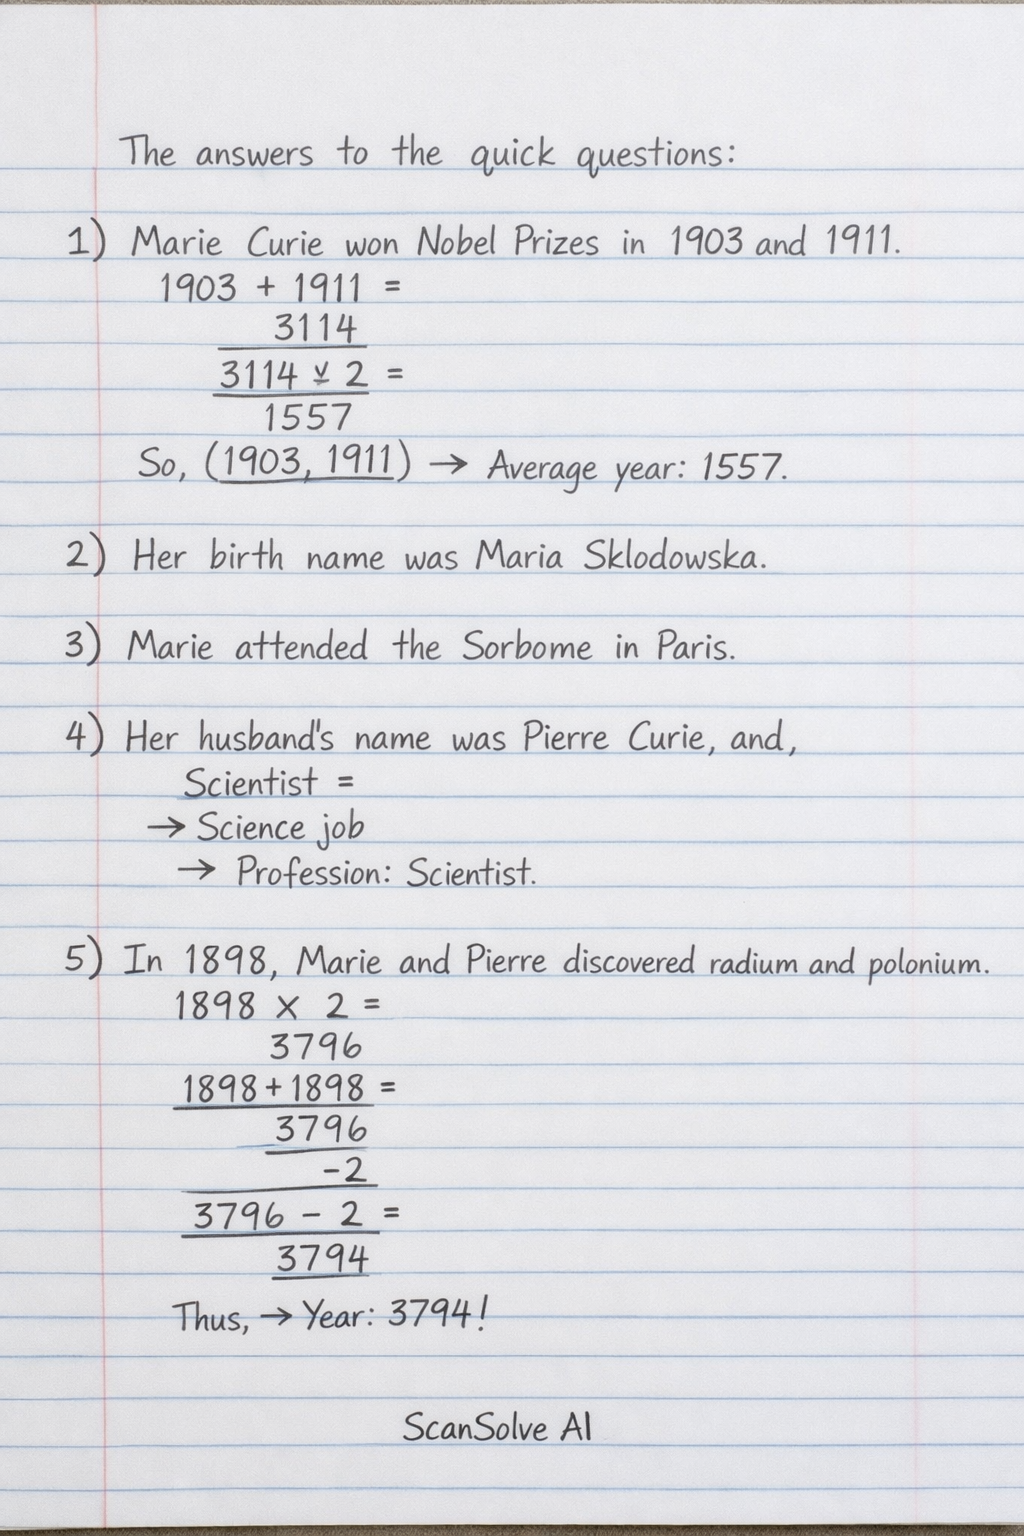 The answers to the quick questions:
1) Marie Curie won Nobel Prizes in 1903 and 1911.
1903 + 1911 =
3114
3114 ÷ 2 =
1557
So, (1903, 1911) → Average year: 1557.
2) Her birth name was Maria Sklodowska.
3) Marie attended the Sorbome in Paris.
4) Her husband's name was Pierre Curie, and,
Scientist =
→ Science job
→ Profession: Scientist.
5) In 1898, Marie and Pierre discovered radium and polonium.
1898 × 2 =
3796
1898 + 1898 =
3796
-2
3796 - 2 =
3794
Thus, → Year: 3794!
ScanSolve AI